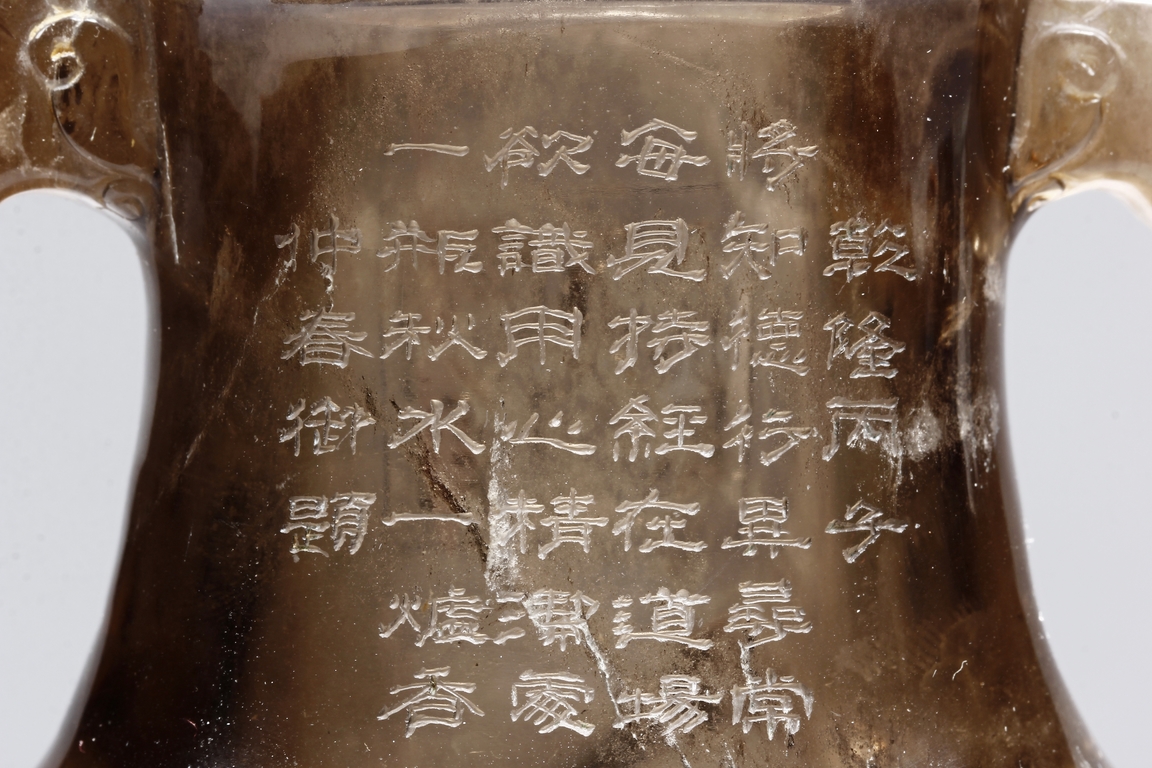 乾隆丙子
將知德行異尋常
每見持經在道場
欲識用心精潔處
一瓶秋水一爐香
仲春御題